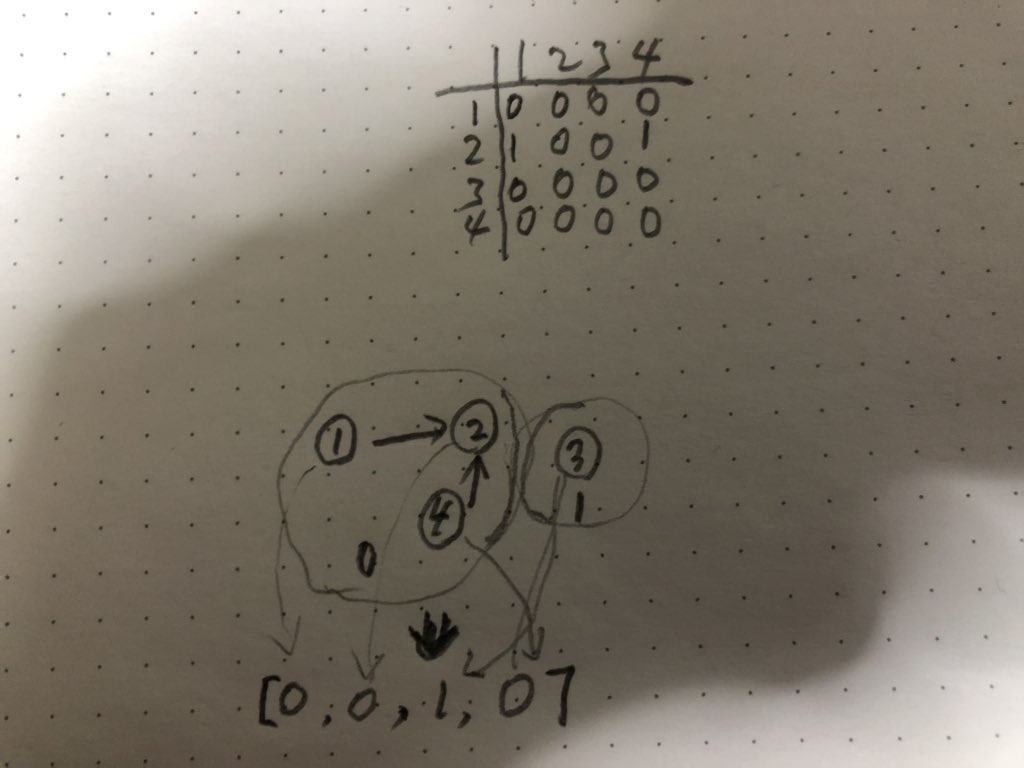 1 2 3 4
1 0 0 0 0
2 1 0 0 1
3 0 0 0 0
4 0 0 0 0
① → ② ③
④ 1
0
[0, 0, 1, 0]